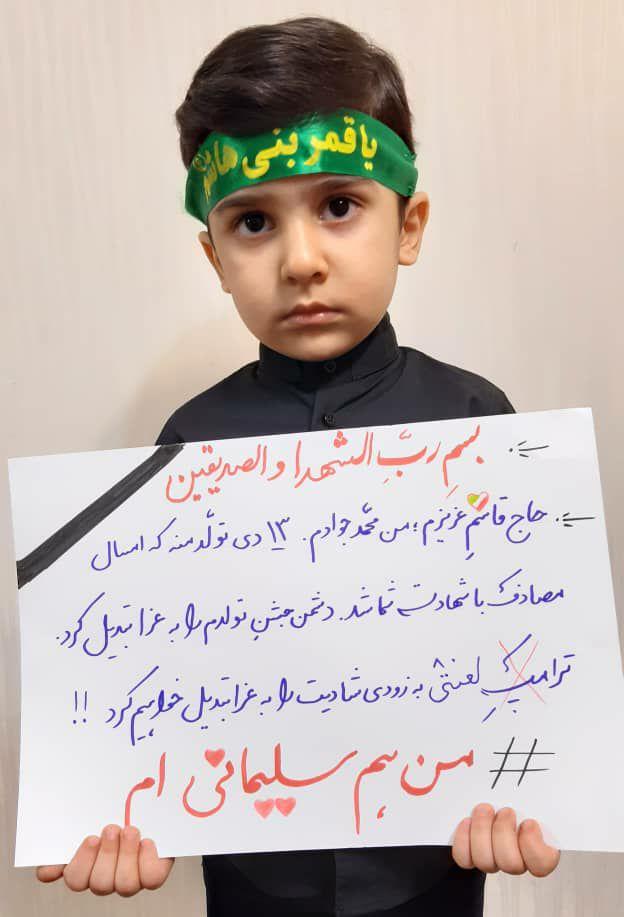 یا قمر بنی هاشم
بسمِ ربِّ الشهدا و الصدیقین
حاج قاسمِ عزیزم؛ من محمّدجوادم. ۱۳ دی تولّد منه که امسال
مصادف با شهادت شما شد. دشمن جشنِ تولدم را به عزا تبدیل کرد.
ترامپِ لعنتی به زودی شادیت را به عزا تبدیل خواهیم کرد !!
# من هم سلیمانی ام